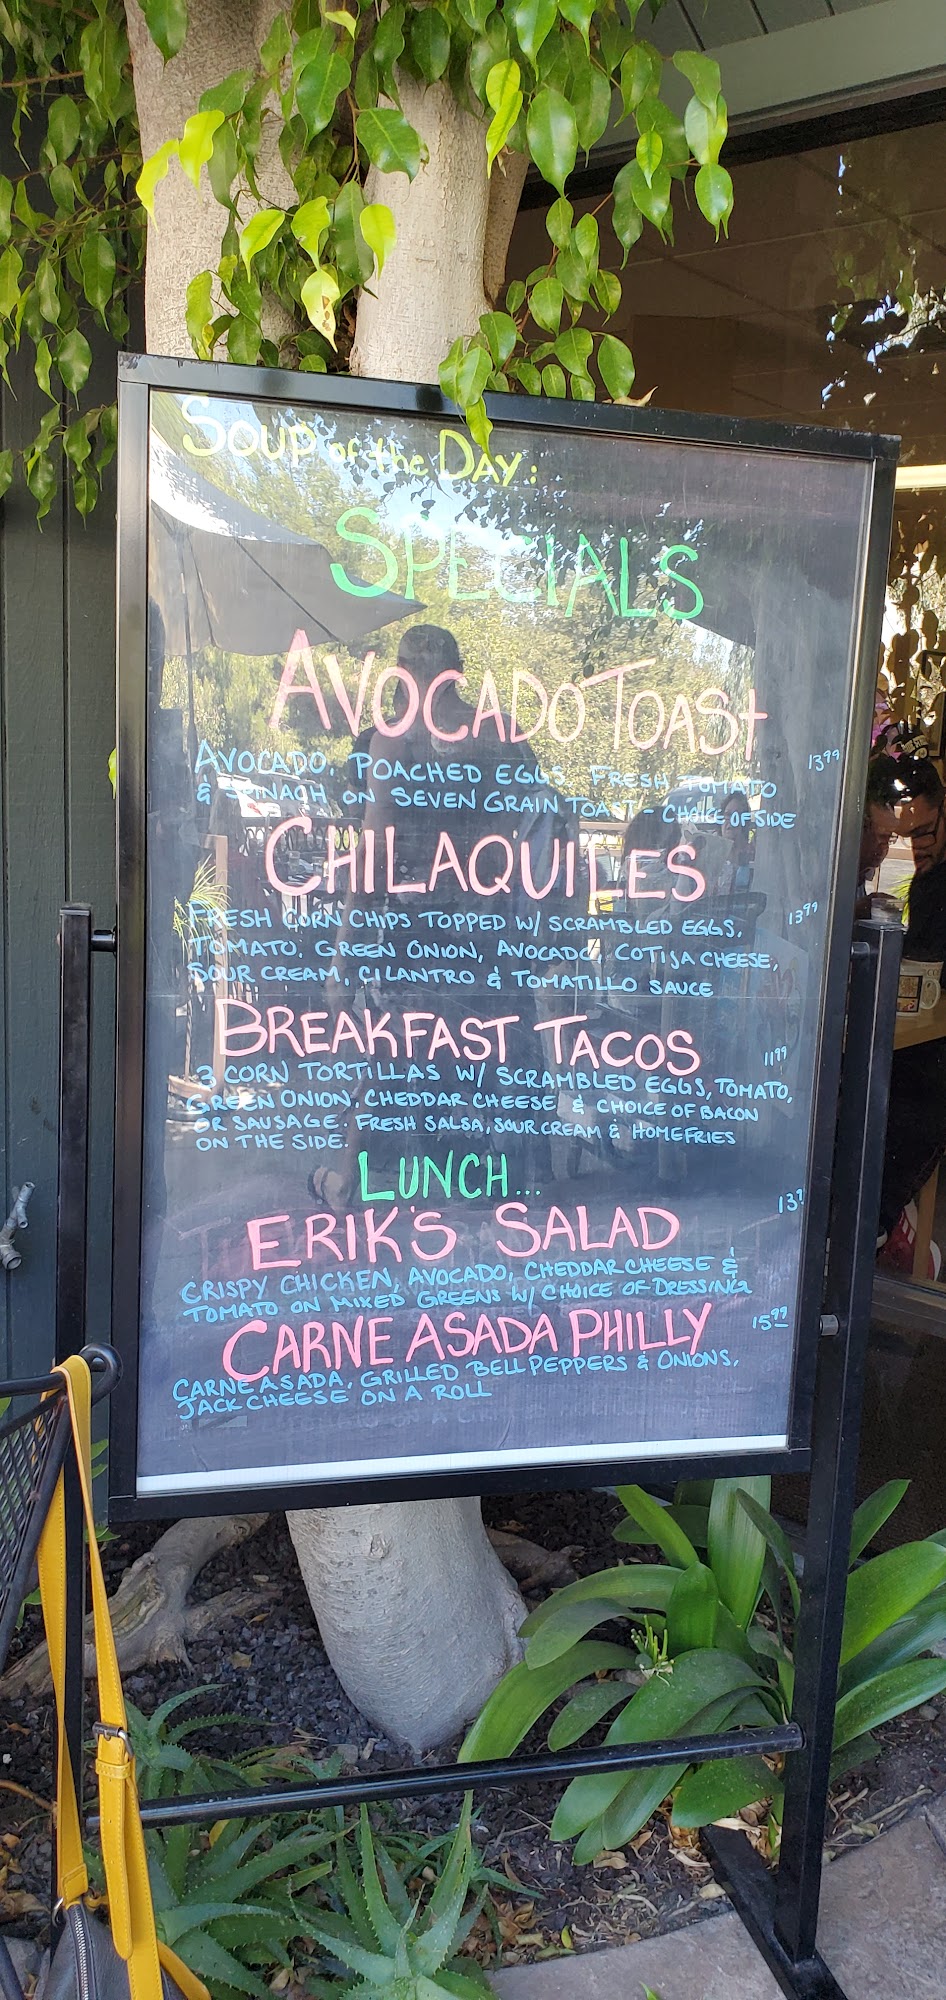 Soup of the Day:
SPECIALS
AVOCADO TOAST
AVOCADO, POACHED EGGS, FRESH TOMATO 13.99
& SPINACH ON SEVEN GRAIN TOAST - CHOICE OF SIDE
CHILAQUILES
FRESH CORN CHIPS TOPPED W/ SCRAMBLED EGGS, 13.99
TOMATO, GREEN ONION, AVOCADO, COTIJA CHEESE,
SOUR CREAM, CILANTRO & TOMATILLO SAUCE
BREAKFAST TACOS 11.99
3 CORN TORTILLAS W/ SCRAMBLED EGGS, TOMATO,
GREEN ONION, CHEDDAR CHEESE & CHOICE OF BACON
OR SAUSAGE. FRESH SALSA, SOUR CREAM & HOMEFRIES
ON THE SIDE.
LUNCH...
ERIK'S SALAD
CRISPY CHICKEN, AVOCADO, CHEDDAR CHEESE &
TOMATO ON MIXED GREENS W/ CHOICE OF DRESSING
CARNE ASADA PHILLY 15.99
CARNE ASADA, GRILLED BELL PEPPERS & ONIONS,
JACK CHEESE ON A ROLL